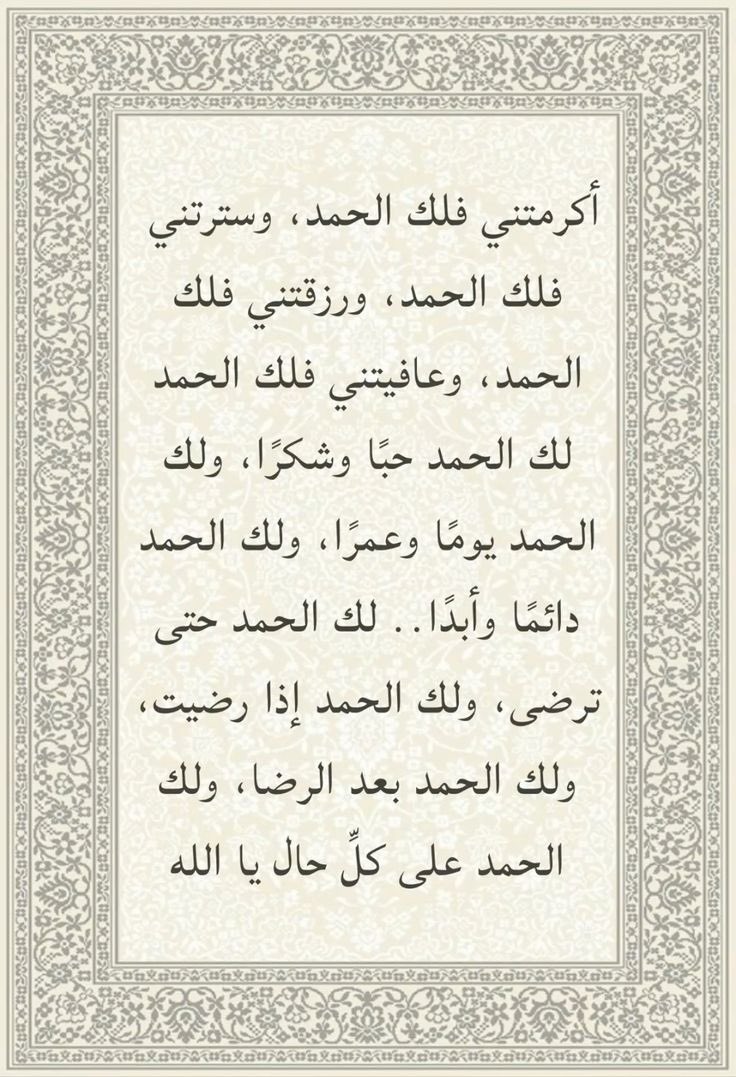 أكرمتني فلك الحمد، وسترتني
فلك الحمد، ورزقتني فلك
الحمد، وعافيتني فلك الحمد
لك الحمد حبًا وشكرًا، ولك
الحمد يومًا وعمرًا، ولك الحمد
دائمًا وأبدًا.. لك الحمد حتى
ترضى، ولك الحمد إذا رضيت،
ولك الحمد بعد الرضا، ولك
الحمد على كلِّ حال يا الله